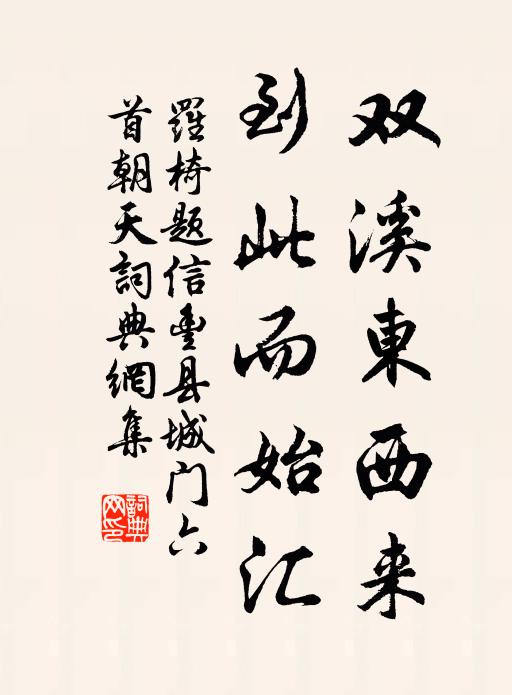 双溪東西来
到此而始汇
羅椅题信豊县城门六
首朝天詞典網集
詞典
网印